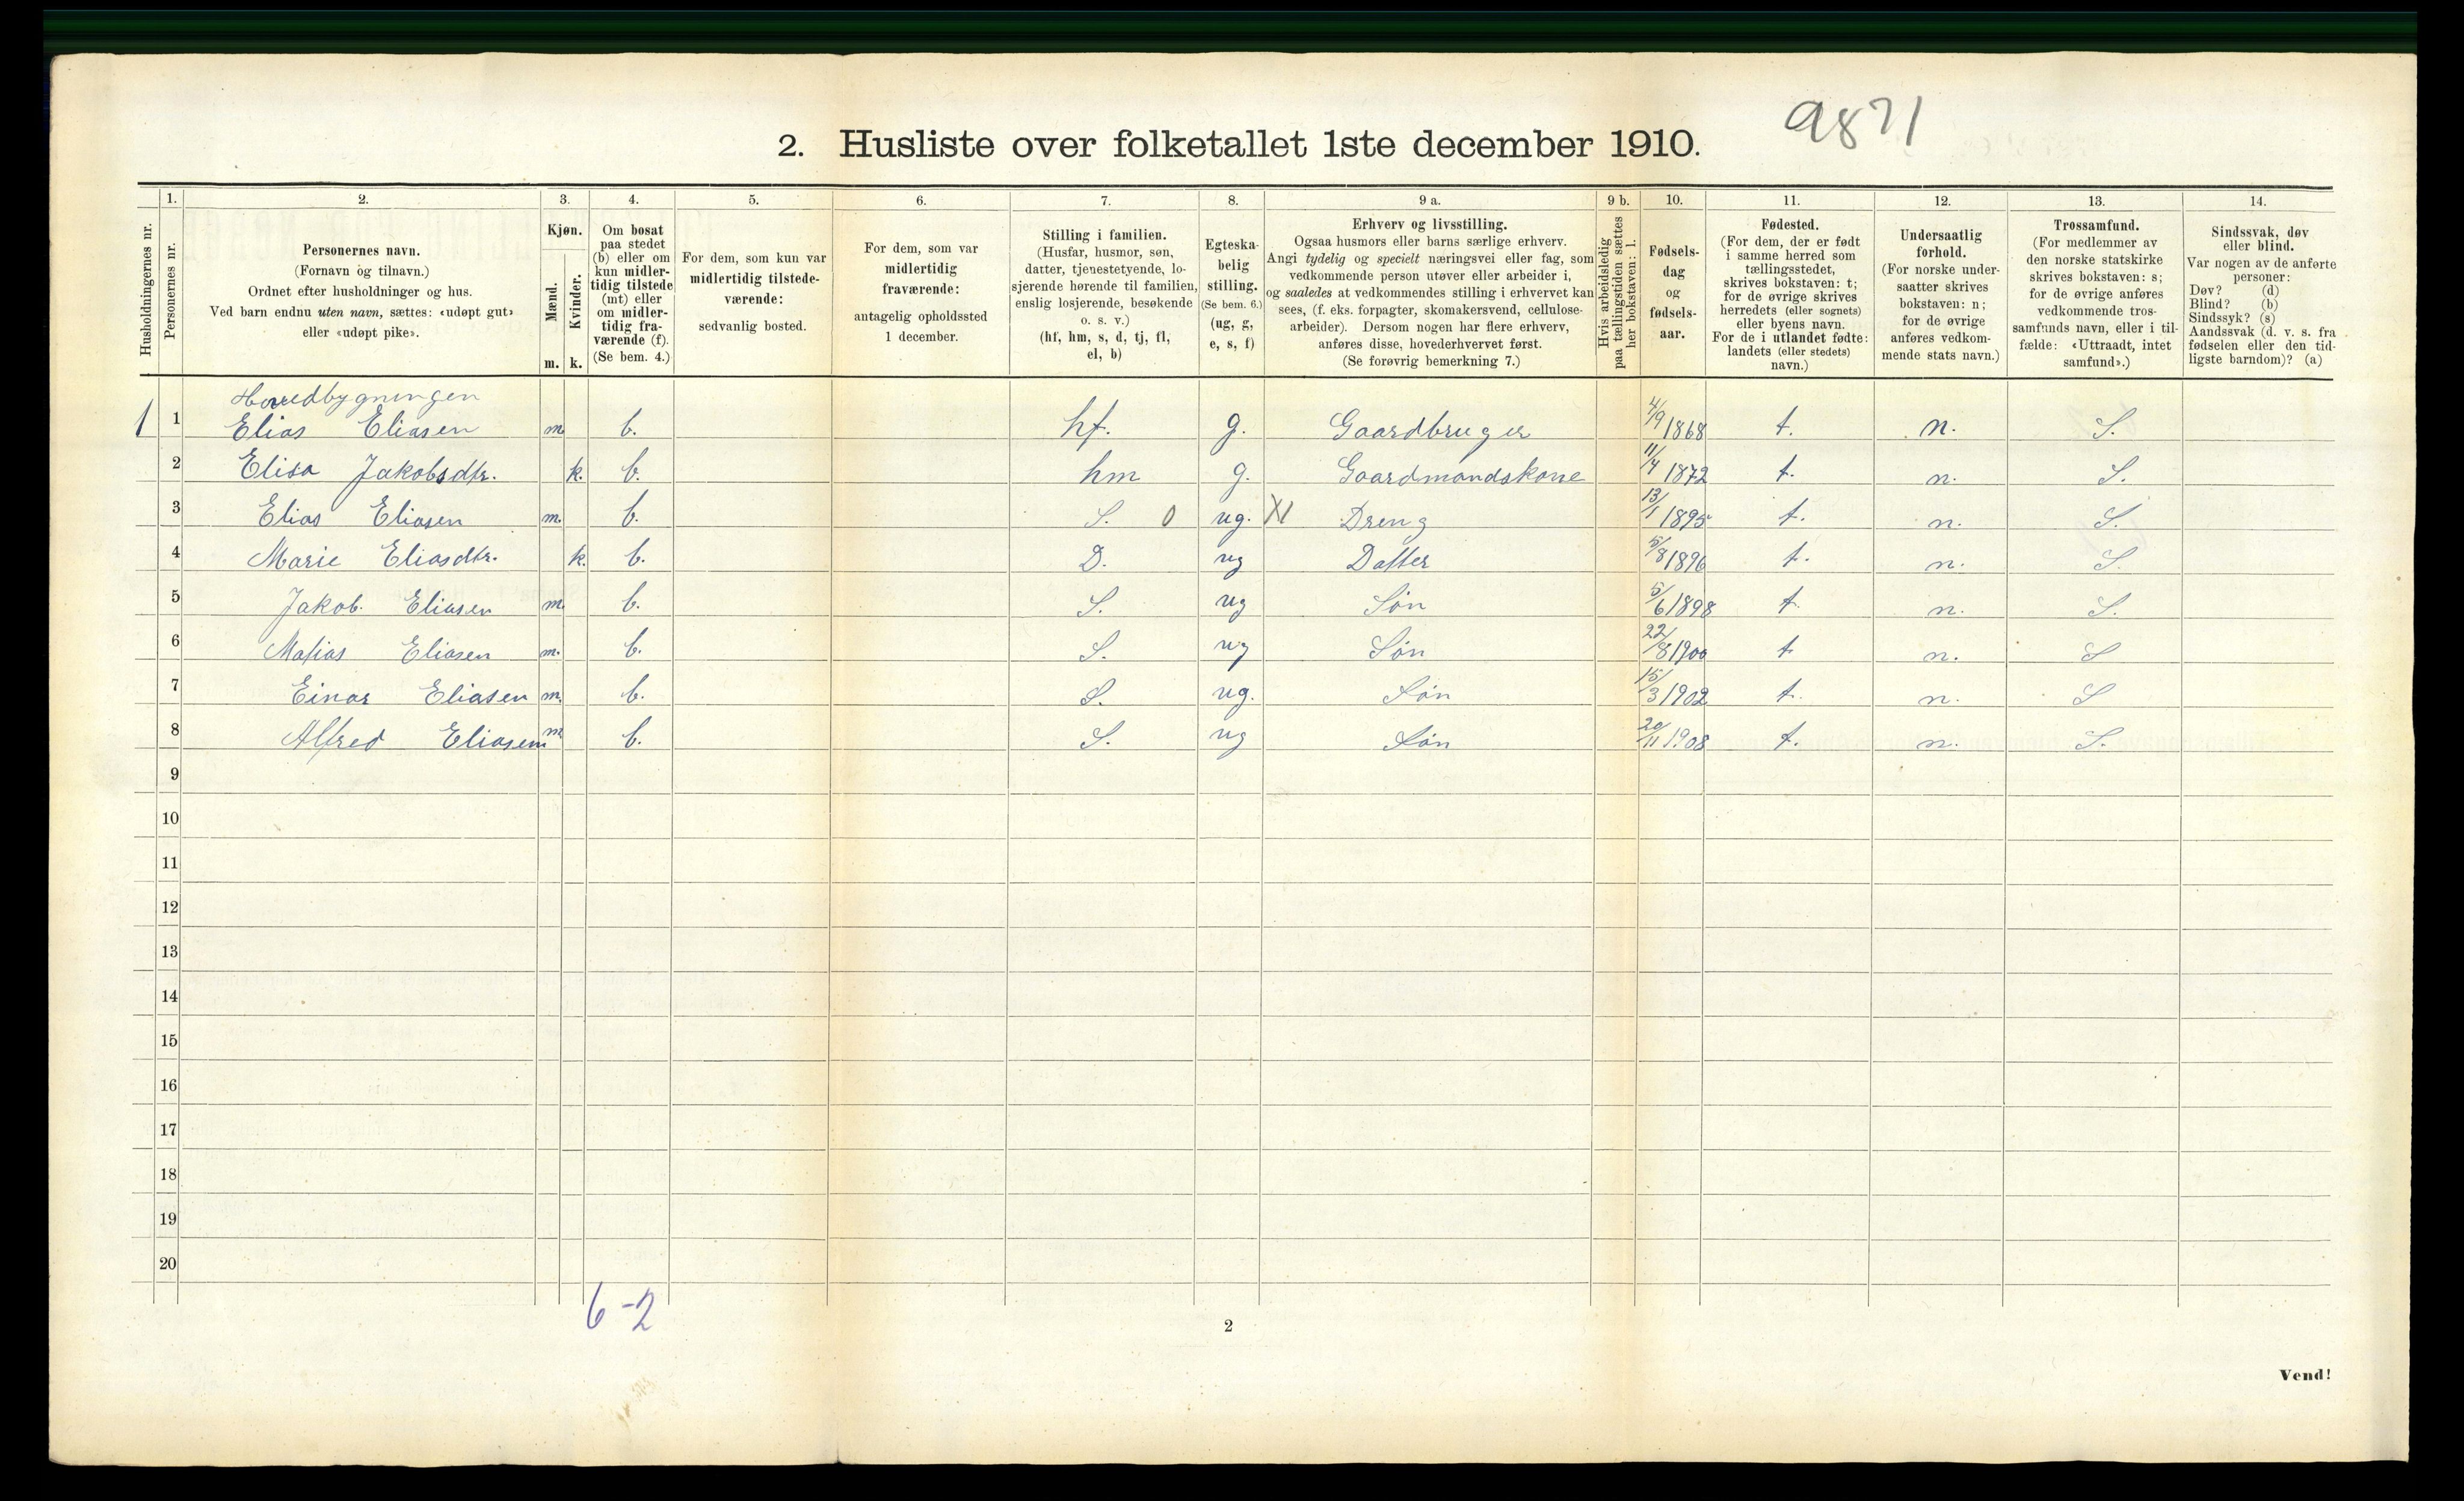 9871
2. Husliste over folketallet 1ste december 1910.
Husholdningernes nr.
1.
Personernes nr.
2.
Personernes navn.
(Fornavn og tilnavn.)
Ordnet efter husholdninger og hus.
Ved barn endnu uten navn, sættes: «udøpt gut»
eller «udøpt pike».
3.
Kjøn.
Mænd.
Kvinder.
m. k.
4.
Om bosat
paa stedet
(b) eller om
kun midler-
tidig tilstede
(mt) eller
om midler-
tidig fra-
værende (f).
(Se bem. 4.)
5.
For dem, som kun var
midlertidig tilstede-
værende:
sedvanlig bosted.
6.
For dem, som var
midlertidig
fraværende:
antagelig opholdssted
1 december.
7.
Stilling i familien.
(Husfar, husmor, søn,
datter, tjenestetyende, lo-
sjerende hørende til familien,
enslig losjerende, besøkende
o. s. v.)
(hf, hm, s, d, tj, fl,
el, b)
8.
Egteska-
belig
stilling.
(Se bem. 6.)
(ug, g,
e, s, f)
9 a.
Erhverv og livsstilling.
Ogsaa husmors eller barns særlige erhverv.
Angi tydelig og specielt næringsvei eller fag, som
vedkommende person utøver eller arbeider i,
og saaledes at vedkommendes stilling i erhvervet kan
sees, (f. eks. forpagter, skomakersvend, cellulose-
arbeider). Dersom nogen har flere erhverv,
anføres disse, hovederhvervet først.
(Se forøvrig bemerkning 7.)
9 b.
Hvis arbeidsledig
paa tællingstiden sættes
her bokstaven: l.
10.
Fødsels-
dag
og
fødsels-
aar.
11.
Fødested.
(For dem, der er født
i samme herred som
tællingsstedet,
skrives bokstaven: t;
for de øvrige skrives
herredets (eller sognets)
eller byens navn.
For de i utlandet fødte:
landets (eller stedets)
navn.)
12.
Undersaatlig
forhold.
(For norske under-
saatter skrives
bokstaven: n;
for de øvrige
anføres vedkom-
mende stats navn.)
13.
Trossamfund.
(For medlemmer av
den norske statskirke
skrives bokstaven: s;
for de øvrige anføres
vedkommende tros-
samfunds navn, eller i til-
fælde: «Uttraadt, intet
samfund».)
14.
Sindssvak, døv
eller blind.
Var nogen av de anførte
personer:
Døv? (d)
Blind? (b)
Sindssyk? (s)
Aandssvak (d. v. s. fra
fødselen eller den tid-
ligste barndom)? (a)
Hovedbygningen
1 1 Elias Eliasen m b. hf. g. Gaardbruger 4/9 1868 t. n. S.
2 Elisa Jakobsdtr. k. b. hm g. Gaardmandskone 11/4 1872 t. n. S.
3 Elias Eliasen m. b. S. 0 ug. XI Dreng 13/1 1895 t. n. S.
4 Marie Eliasdtr. k. b. D. ug Datter 5/8 1896 t. n. S.
5 Jakob. Eliasen m. b. S. ug Søn 5/6 1898 t. n. S.
6 Matias Eliasen m. b. S. ug Søn 22/8 1900 t n. S
7 Einar Eliasen m. b. S. ug. Søn 15/3 1902 t. n. S
8 Alfred Eliasen m b. S. ug Søn 20/11 1908 t. n. S.
9
10
11
12
13
14
15
16
17
18
19
20
6-2
2
Vend!